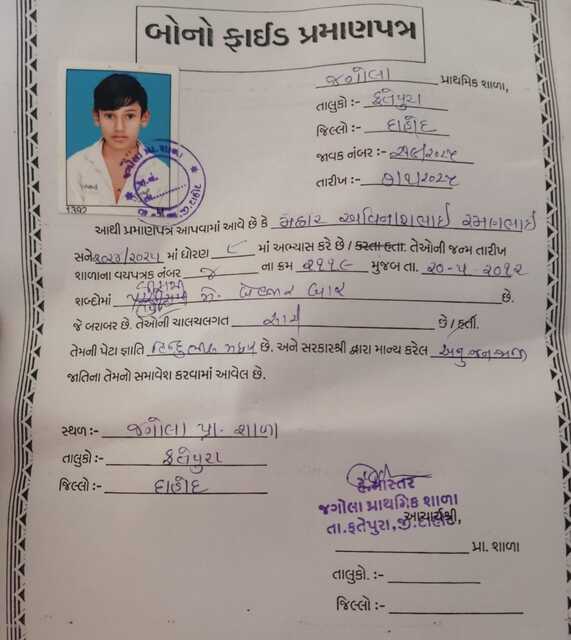 બોનો ફાઈડ પ્રમાણપત્ર
જગોલા પ્રાથમિક શાળા,
તાલુકો :- ફતેપુરા
જિલ્લો :- દાહોદ
જાવક નંબર :-
તારીખ :- ૭/૧/૨૦૨૫
1392
આથી પ્રમાણપત્ર આપવામાં આવે છે કે મછાર અવિનાશભાઈ રમણભાઈ
સને ૨૦૨૪/૨૦૨૫ માં ધોરણ ૮ માં અભ્યાસ કરે છે / કરતા હતા. તેઓની જન્મ તારીખ
શાળાના વયપત્રક નંબર ૪ ના ક્રમ ૨૧૧૯ મુજબ તા. ૨૦-૫-૨૦૧૨
શબ્દોમાં મે. બે હજાર બાર છે.
જે બરાબર છે. તેઓની ચાલચલગત સારી છે / હતી.
તેમની પેટા જ્ઞાતિ હિન્દુ ભીલ મછાર છે. અને સરકારશ્રી દ્વારા માન્ય કરેલ અનુ જન જાતિ
જાતિના તેમનો સમાવેશ કરવામાં આવેલ છે.
સ્થળ :- જગોલા પ્રા. શાળા
તાલુકો :- ફતેપુરા
જિલ્લો :- દાહોદ
હેડમાસ્તર
જગોલા પ્રાથમિક શાળા
આચાર્યશ્રી,
તા.ફતેપુરા, જી.દાહોદ
પ્રા. શાળા
તાલુકો. :-
જિલ્લો :-